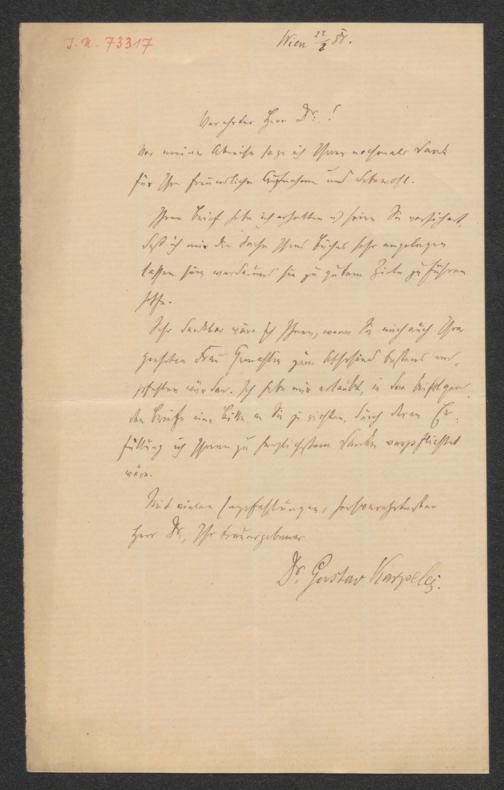 I. N. 73317
Wien 22/2 81.
Verehrter Herr Dr.!
Vor meiner Abreise sage ich Ihnen nochmals Dank
für Ihre freundliche Aufnahme und Lebewohl.
Ihren Brief habe ich erhalten u seien Sie versichert,
daß ich mir die Sache Ihres Buches sehr angelegen
lassen sein werde und sie zu gutem Ziele zu führen
hoffe.
Sehr dankbar wäre ich Ihnen, wenn Sie mich auch Ihrer
Frau Gemahlin zum Abschied bestens em-
pfehlen würden. Ich habe mir erlaubt, in dem
den Briefe eine Bitte an Sie zu richten, durch deren Er-
füllung ich Ihnen zu herzlichstem Danke verpflichtet
wäre.
Mit vielen Empfehlungen, hochverehrtester
Herr Dr., Ihr treuergebener
Dr. Gustav Karpeles.